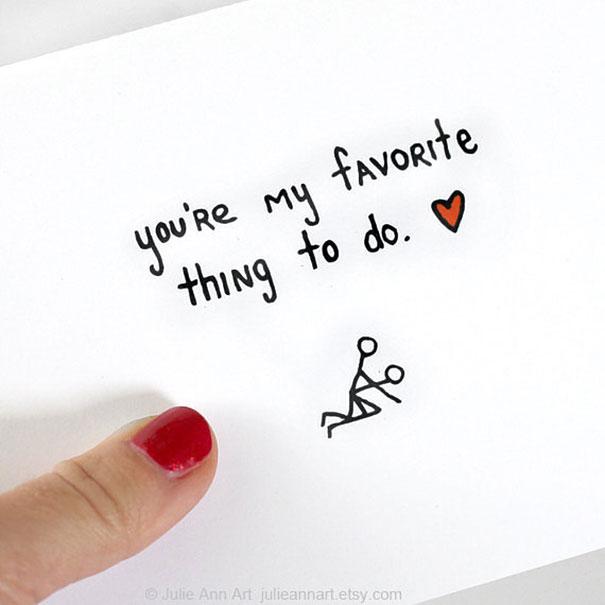 you're my favorite
thing to do.
© Julie Ann Art julieannart.etsy.com